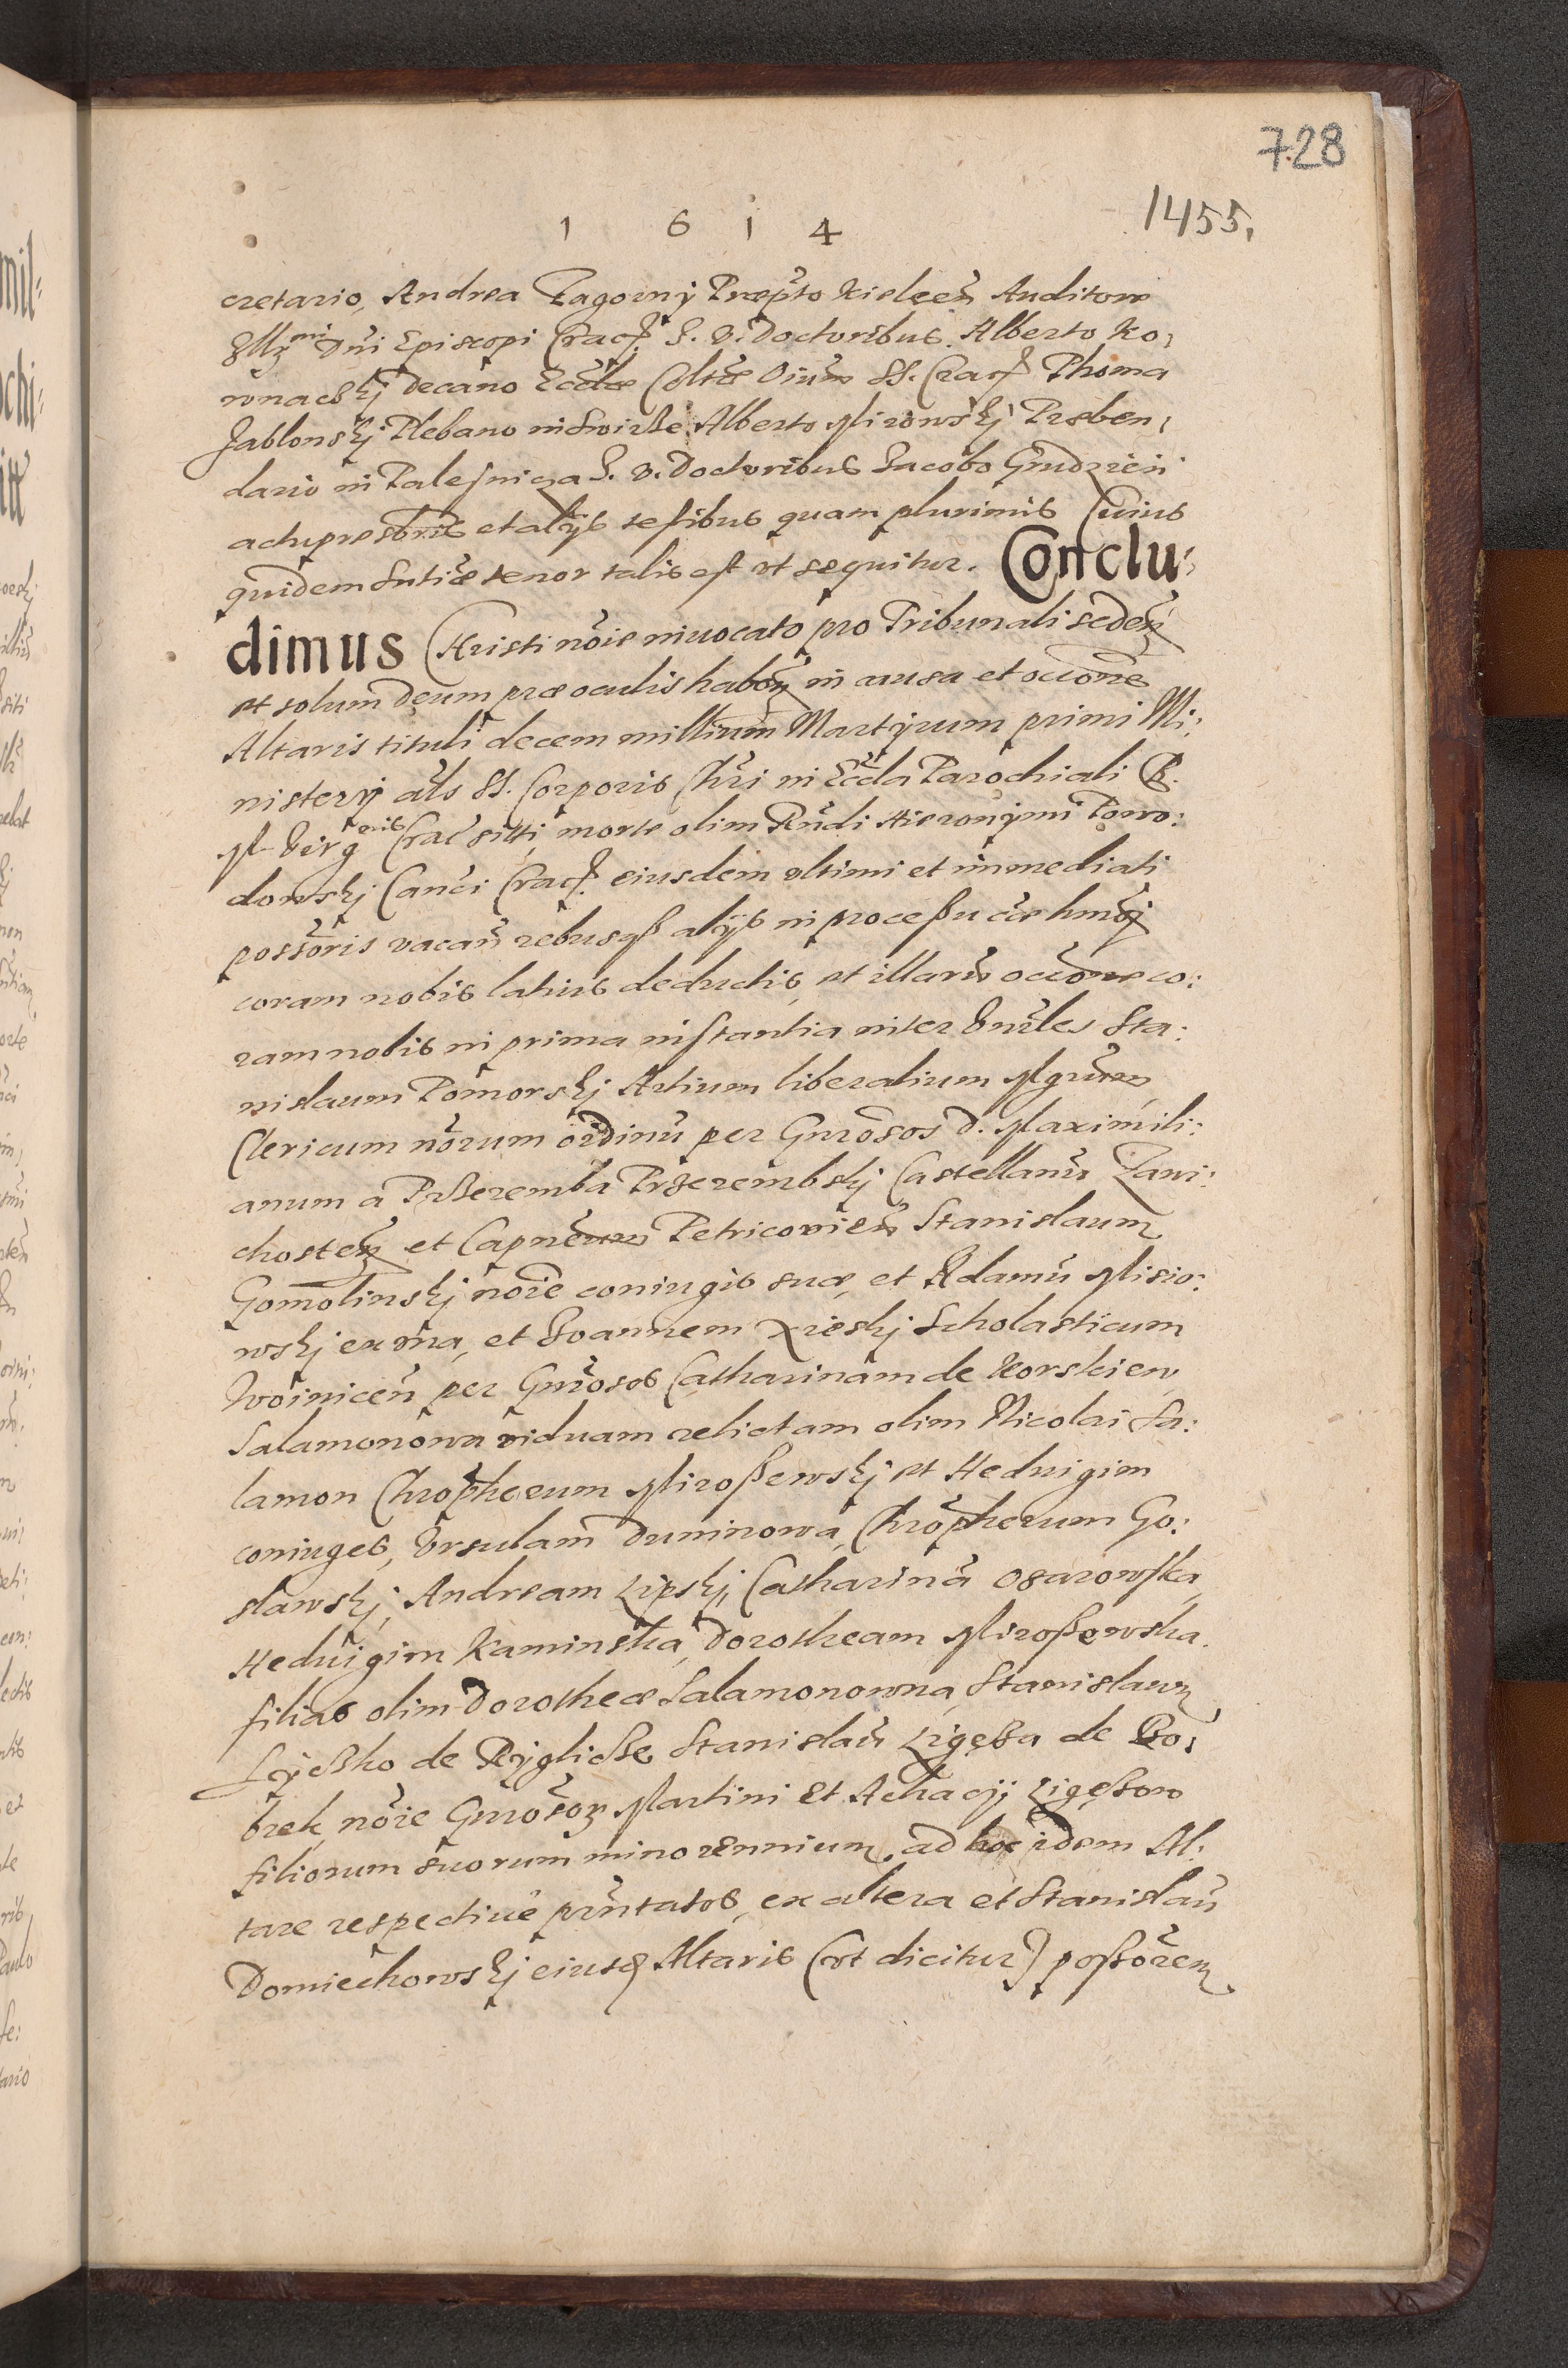 728
1455.
1 6 1 4
cretario, Andrea Zagorny Præpto Kielceñ Auditore
Illmi Dñi Episcopi Crac. I. V. Doctoribus. Alberto Ko,
wnaczkj Decano Eccłæ Coltæ Oium SS. Crac. Thoma
Jablonskj Plebano in Swirße Alberto Mironskj Preben,
dario in Palesnicza I. V. Doctoribus Jacobo Grudzień
actu presbris et alijs testibus quam plurimis Cuius
quidem Sntiæ tenor talis est vt sequitur. Conclu:
dimus Christi nõie inuocato pro Tribunali sedeñ
et solum Deum præ oculis haben in causa et occõne
Altaris tituli decem millium Martyrum primi Mi:
nisterij als SS. Corporis Chri in Eccła Parochiali B.
M. Virginis Crac siti, morte olim Rñdi Hieronymi Powo:
dowskj Canci Crac. eiusdem vltimi et immediati
possõris vacañ rebusq3 alijs in processu cæ hmõi
coram nobis latius deductis, et illarũ occõne co:
ram nobis in prima instantia inter Vnrłes Sta:
nislaum Pomorskj Artium liberalium Mgrum
Clericum nõrum ordinũ per Gnrõsos D. Maximili:
anum à Przeremba Przerembskj Castellanũ Zawi:
chosteñ et Capneum Petricovieñ Stanislaum
Gomolinskj nõie coniugis suæ, et Adamũ Misio:
wskj ex vna, et Joannem Xieskj Scholasticum
Woiniceñ per Gnrõsos Catharinam de Korskiew
Salamonowa viduam relictam olim Nicolai Sa:
lamon Chropherum Miroßewskj et Heduigim
coniuges, Vrsulam Duninowa, Chropherum Go:
slawskj, Andream Lipskj, Catharinã Ożarowska
Heduigim Kaminska, Dorotheam Miroßewska
filias olim Dorotheæ Salamonowna, Stanislaum
Łyczko de Ryglicze Stanislaũ Ligęza de Bo,
brek nõie Gnrõsor Martini et Achacij Ligęzow
filiorum suorum minorennium, ad hoc idem Al:
tare respectiuè pñtatos, ex altera et Stanislaũ
Domiechowskj eiusd Altaris (vt dicitur) possõrem